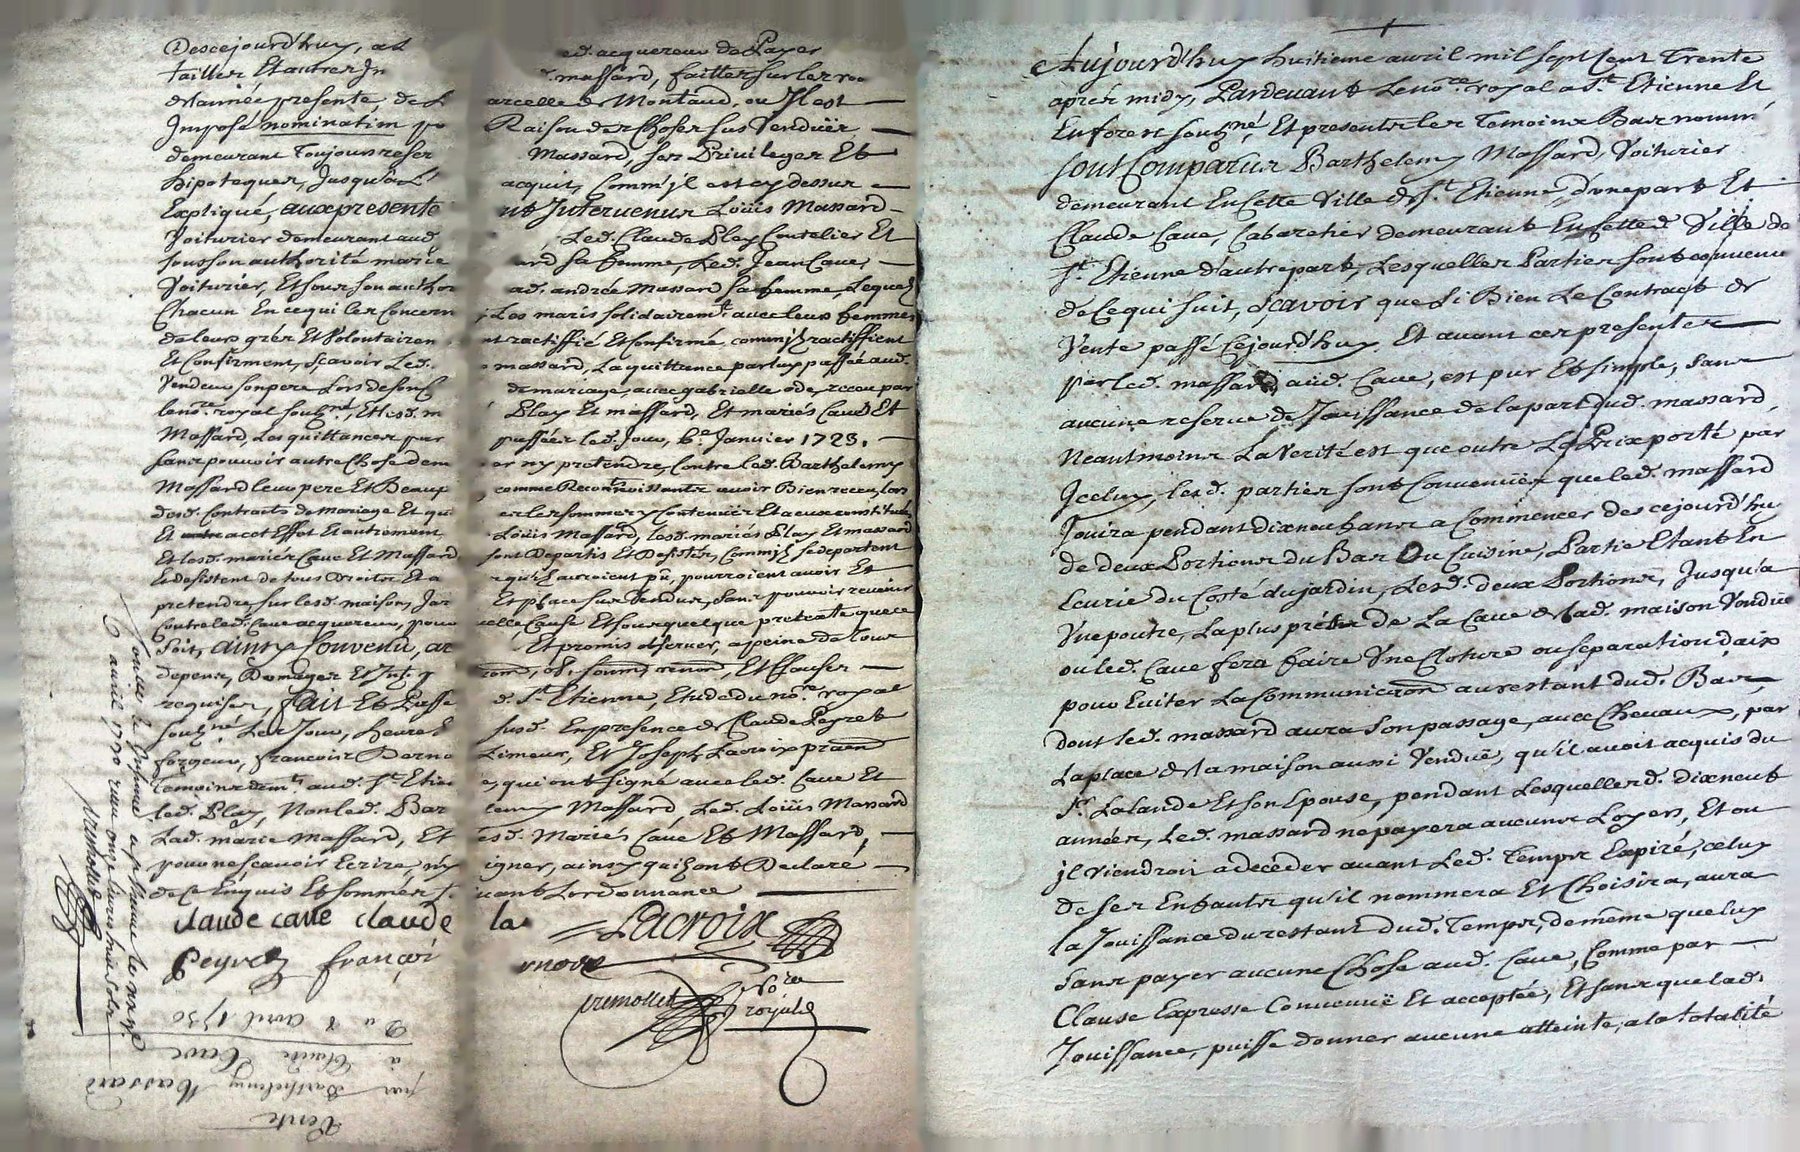 Descejourd'huy, at
tailles Et autres Jn
de l'année presente, de L
Jmposé nominatim po
demeurant toujours reser
hipoteques, Jusqu'a L
Expliqué, aux presente
Voiturier demeurant aud.
sous son authorité marie
Voiturier, Et sous son author
Chacun En ce qui les concern
de leurs grés Et Volontairem
Et Confirment, sçavoir Led.
Vendeur son pere Lors de son C
le no.re royal soubs.né, Et lesd. m
Massard, Les quittances par
sans pouvoir autre Chose dem
Massard leur pere Et Beaux
desd. Contracts de mariage Et qui
Et a cet Effet Et autrement,
Et lesd. mariés Cave Et Massard
se desistent de tous droits Et a
pretendre, sur lesd. maison, Jar
Contre led. Cave acquereur, pour
soit, ainsy Convenu, ac
depens, Domages Et Jnt. q
requises, fait Et Passé
soubs.né Les Jour, heure E
forgeur, francois Berno
temoins dem.ts aud. St. Etien
led. Play, Non led. Bar
Lad. marie Massard, Et
pour ne sçavoir Ecrire, ny
de ce Enquis Et sommés s.
claude cave claude
Peyret françoi
ed. acquereur de Payer
massard, faittes sur les ro
arcelle de Montaud, ou Jl est
Raison des Choses sus Venduës
Massard, ses Privileges Et
acquit, Comm'jl est cy dessus
nt Jntervenus Loüis Massard
Led. Claude Play Coutelier Et
ard sa femme, Led. Jean Cave,
ad. andrée Massard sa femme, Lequel
Les maris solidairem.t avec leurs femmes
nt ractiffié Et Confirmé, comm'jls ractiffient
massard, La quittance par luy passée aud.
de mariage, avec gabrielle ode, receu par
Play Et massard, Et mariés Cave Et
passées led. Jour, 6.e Janvier 1723.
er ny pretendre, Contre led. Barthelemy
comme Reconnoissants avoir Bien receu, lors
es les sommes y Contenuës Et a ceux constitués
Loüis Massard, lesd. mariés Play Et massard
sont Departis Et Desistés, Comm'jls se departent
qu'ils auroient pû, pourroient avoir Et
Et place sus Vendus, sans pouvoir revenir
elle Cause Et sous quelque pretexte que ce
Et promis observer, a peine de tous
d. St. Etienne, Etude du no.re royal
susd. En presence de Claude Peyret
Limeur, Et Joseph Lacroix praen
s, qui ont signé avec led. Cave Et
lemy Massard, Led. Loüis Massard
esd. Mariés Cave Et Massard,
igner, ainsy qu'ils ont Declaré
uant Lordonnance
la
Lacroix
rnou
premollet no.re
royal
premollet
Du 8 avril 1730
Vente
par Barthelemy Massard
à Claude Cave
Aujourd'huy huitieme avril mil sept Cent Trente
aprés midy, Pardevant Le no.re royal a St. Etienne Et
En forest soubs.né, Et presents les Temoins Bas nommé
sont Comparus Barthelemy Massard, Voiturier
demeurant En Cette Ville de St. Etienne, d'une part Et
Claude Cave, Cabaretier demeurant En Cette d. Ville de
St. Etienne d'autre part, Lesquelles Parties sont convenu
de Ce qui suit, sçavoir que si Bien Le Contract de
Vente passé Cejourd'huy Et avant ces presentes
par led. massard aud. Cave, est pur Et simple, sans
aucune reserve de Jouissance de la part dud. massard,
Neantmoins La Verité est que outre Le Prix porté par
Jceluy, lesd. parties sont Convenuës que led. massard
Jouira pendant dixneuf ans a Commencer descejourd'huy
de deux Portions du Bas Ou Cuisine, Partie Etant En
Ecurie du Costé du jardin, Lesd. deux Portions, Jusqu'a
Vne poutre, la plus prés de La Cave de lad. maison Venduë
ou led. Cave fera faire Vne Cloture ou separation d'aix
pour Eviter La Communica'on au restant dud. Bas,
dont led. massard aura son passage, avec Chevaux, par
La place de la maison aussi Venduë, qu'il avoit acquis du
Sr. Lalande Et son Epouse, pendant Lesquelles d. dixneuf
années, Led. massard ne payera aucuns Loyers, Et ou
jl viendroit a deceder avant Led. Temps Expiré, celuy
de ses Enfants qu'il nommera Et Choisira, aura
la Jouissance du restant dud. Temps, de même que luy
sans payer aucune Chose aud. Cave, Comme par
Clause Expresse Convenuë Et acceptée, Et sans que lad.
Jouissance, puisse donner aucune atteinte, a la totalité